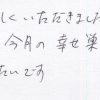 しくいただきました
今月の幸せ巣
たいです